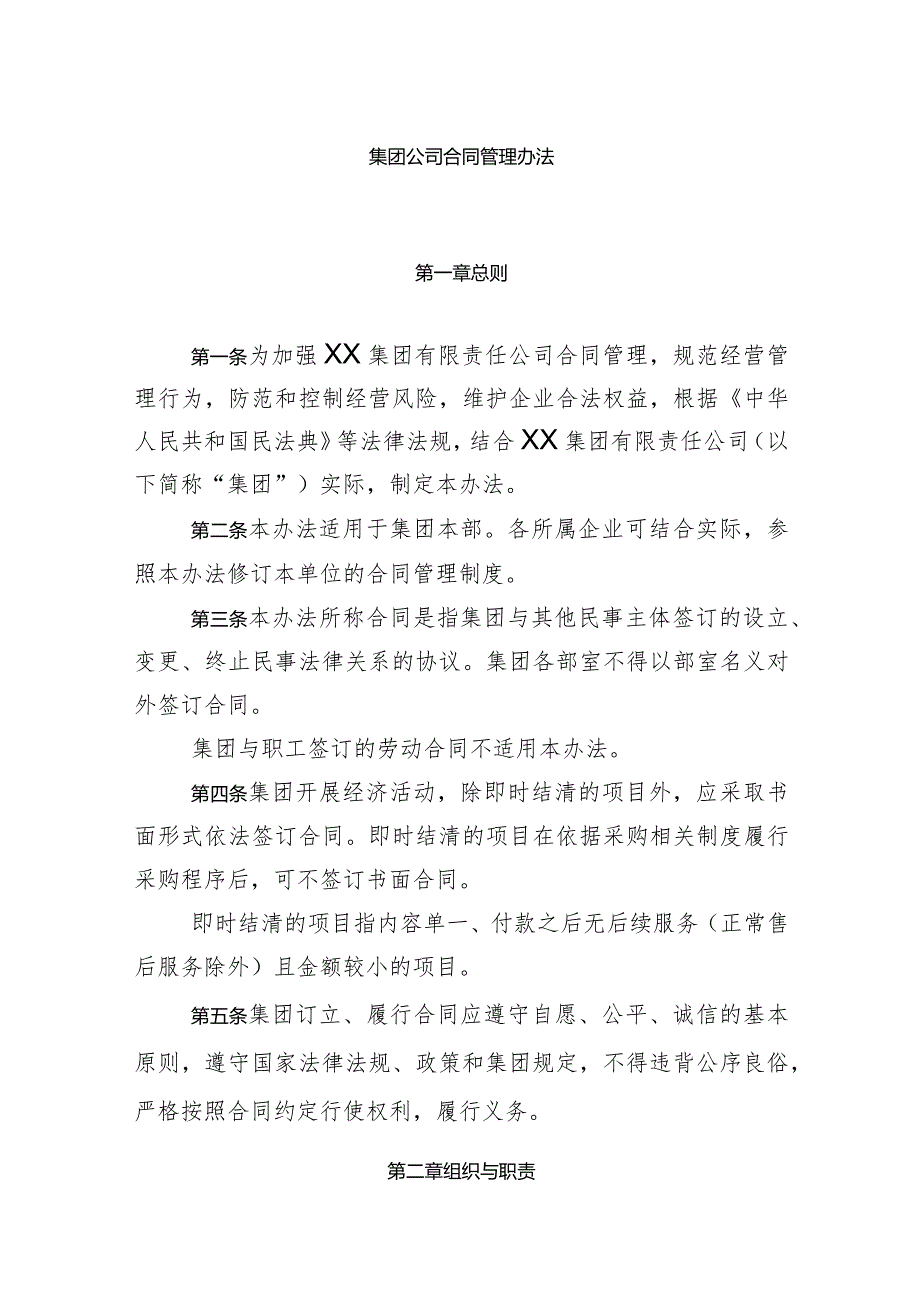 集团公司合同管理办法
第一章总则
第一条为加强XX集团有限责任公司合同管理，规范经营管
理行为，防范和控制经营风险，维护企业合法权益，根据《中华
人民共和国民法典》等法律法规，结合XX集团有限责任公司（以
下简称“集团”）实际，制定本办法。
第二条本办法适用于集团本部。各所属企业可结合实际，参
照本办法修订本单位的合同管理制度。
第三条本办法所称合同是指集团与其他民事主体签订的设立、
变更、终止民事法律关系的协议。集团各部室不得以部室名义对
外签订合同。
集团与职工签订的劳动合同不适用本办法。
第四条集团开展经济活动，除即时结清的项目外，应采取书
面形式依法签订合同。即时结清的项目在依据采购相关制度履行
采购程序后，可不签订书面合同。
即时结清的项目指内容单一、付款之后无后续服务（正常售
后服务除外）且金额较小的项目。
第五条集团订立、履行合同应遵守自愿、公平、诚信的基本
原则，遵守国家法律法规、政策和集团规定，不得违背公序良俗，
严格按照合同约定行使权利，履行义务。
第二章组织与职责